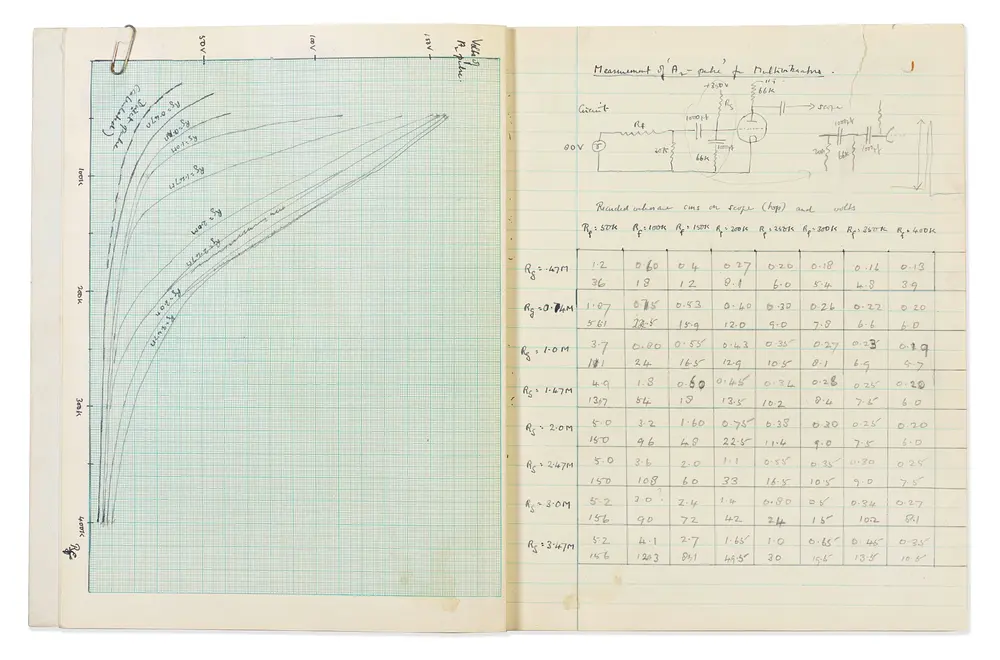 50V
100V
150V
Volts of
A₂ pulse.
Direct Pulse
(calculated)
Rg=0.47Ω
Rg=1.0M
Rg=1.47M
Rg=2.0M
Rg=2.47M
100K
200K
300K
400K
Rf
Measurement of 'A₂ - pulse' for Multivibrators.
Circuit
+250v
66K
→ scope
Rg
1000pf
Rf
90V
66K
Recorded in cms on scope (top) and volts
Rf=50K Rf=100K Rf=150K Rf=200K Rf=250K Rf=300K Rf=350K Rf=400K
Rg=.47M 1.2 0.60 0.4 0.27 0.20 0.18 0.16 0.13
36 18 12 8.1 6.0 5.4 4.8 3.9
Rg=0.74M 1.87 0.75 0.53 0.40 0.30 0.26 0.22 0.20
56.1 22.5 15.9 12.0 9.0 7.8 6.6 6.0
Rg=1.0M 3.7 0.80 0.55 0.43 0.35 0.27 0.23 0.19
111 24 16.5 12.9 10.5 8.1 6.9 5.7
Rg=1.47M 4.9 1.8 0.60 0.45 0.34 0.28 0.25 0.20
147 54 18 13.5 10.2 8.4 7.5 6.0
Rg=2.0M 5.0 3.2 1.60 0.75 0.38 0.30 0.25 0.20
150 96 48 22.5 11.4 9.0 7.5 6.0
Rg=2.47M 5.0 3.6 2.0 1.1 0.55 0.35 0.30 0.25
150 108 60 33 16.5 10.5 9.0 7.5
Rg=3.0M 5.2 3.0? 2.4 1.4 0.80 0.5 0.34 0.27
156 90 72 42 24 15 10.2 8.1
Rg=3.47M 5.2 4.1 2.7 1.65 1.0 0.65 0.45 0.35
156 123 81 49.5 30 19.5 13.5 10.5